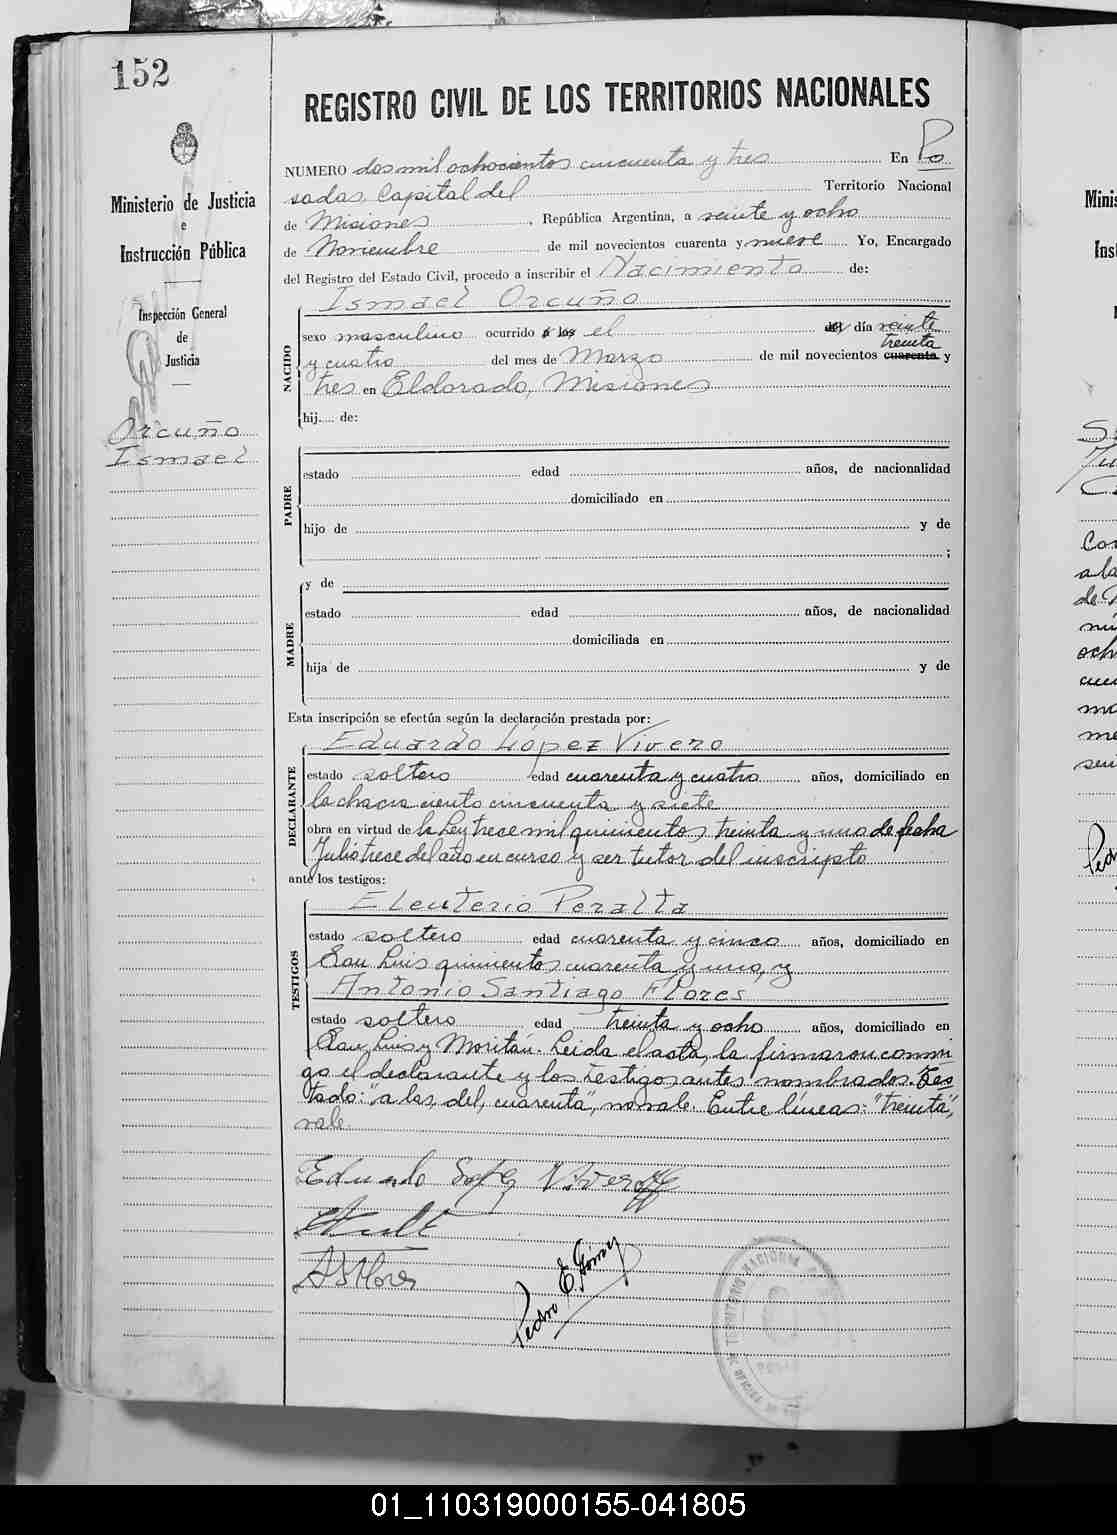 152
Ministerio de Justicia
e
Instrucción Pública
Inspección General
de
Justicia
Orcuño
Ismael
REGISTRO CIVIL DE LOS TERRITORIOS NACIONALES
NUMERO dos mil ochocientos cincuenta y tres En Po
sadas, Capital del Territorio Nacional
de Misiones, República Argentina, a veinte y ocho
de Noviembre de mil novecientos cuarenta y nueve Yo, Encargado
del Registro del Estado Civil, procedo a inscribir el Nacimiento de:
Ismael Orcuño
NACIDO
sexo masculino ocurrido a las el del día veinte
y cuatro del mes de Marzo de mil novecientos cuarenta treinta y
tres en Eldorado, Misiones
hij.... de:
PADRE
estado edad años, de nacionalidad
domiciliado en
hijo de y de
;
MADRE
y de
estado edad años, de nacionalidad
domiciliada en
hija de y de
Esta inscripción se efectúa según la declaración prestada por:
DECLARANTE
Eduardo López Vivero
estado soltero edad cuarenta y cuatro años, domiciliado en
la chacra ciento cincuenta y siete
obra en virtud de la Ley trece mil quinientos treinta y uno de fecha
Julio trece del año en curso y ser tutor del inscripto
ante los testigos:
TESTIGOS
Eleuterio Peralta
estado soltero edad cuarenta y cinco años, domiciliado en
San Luis quinientos cuarenta y uno, y
Antonio Santiago Flores
estado soltero edad treinta y ocho años, domiciliado en
San Luis y Moritán. Leida el acta, la firmaron conmi
go el declarante y los testigos antes nombrados. Tes
tado: "a las, del, cuarenta", no vale. Entre líneas: "treinta",
vale.
Eduardo López Vivero
A S Flores
Pedro E. Gómez
TERRITORIO NACIONAL
01_110319000155-041805